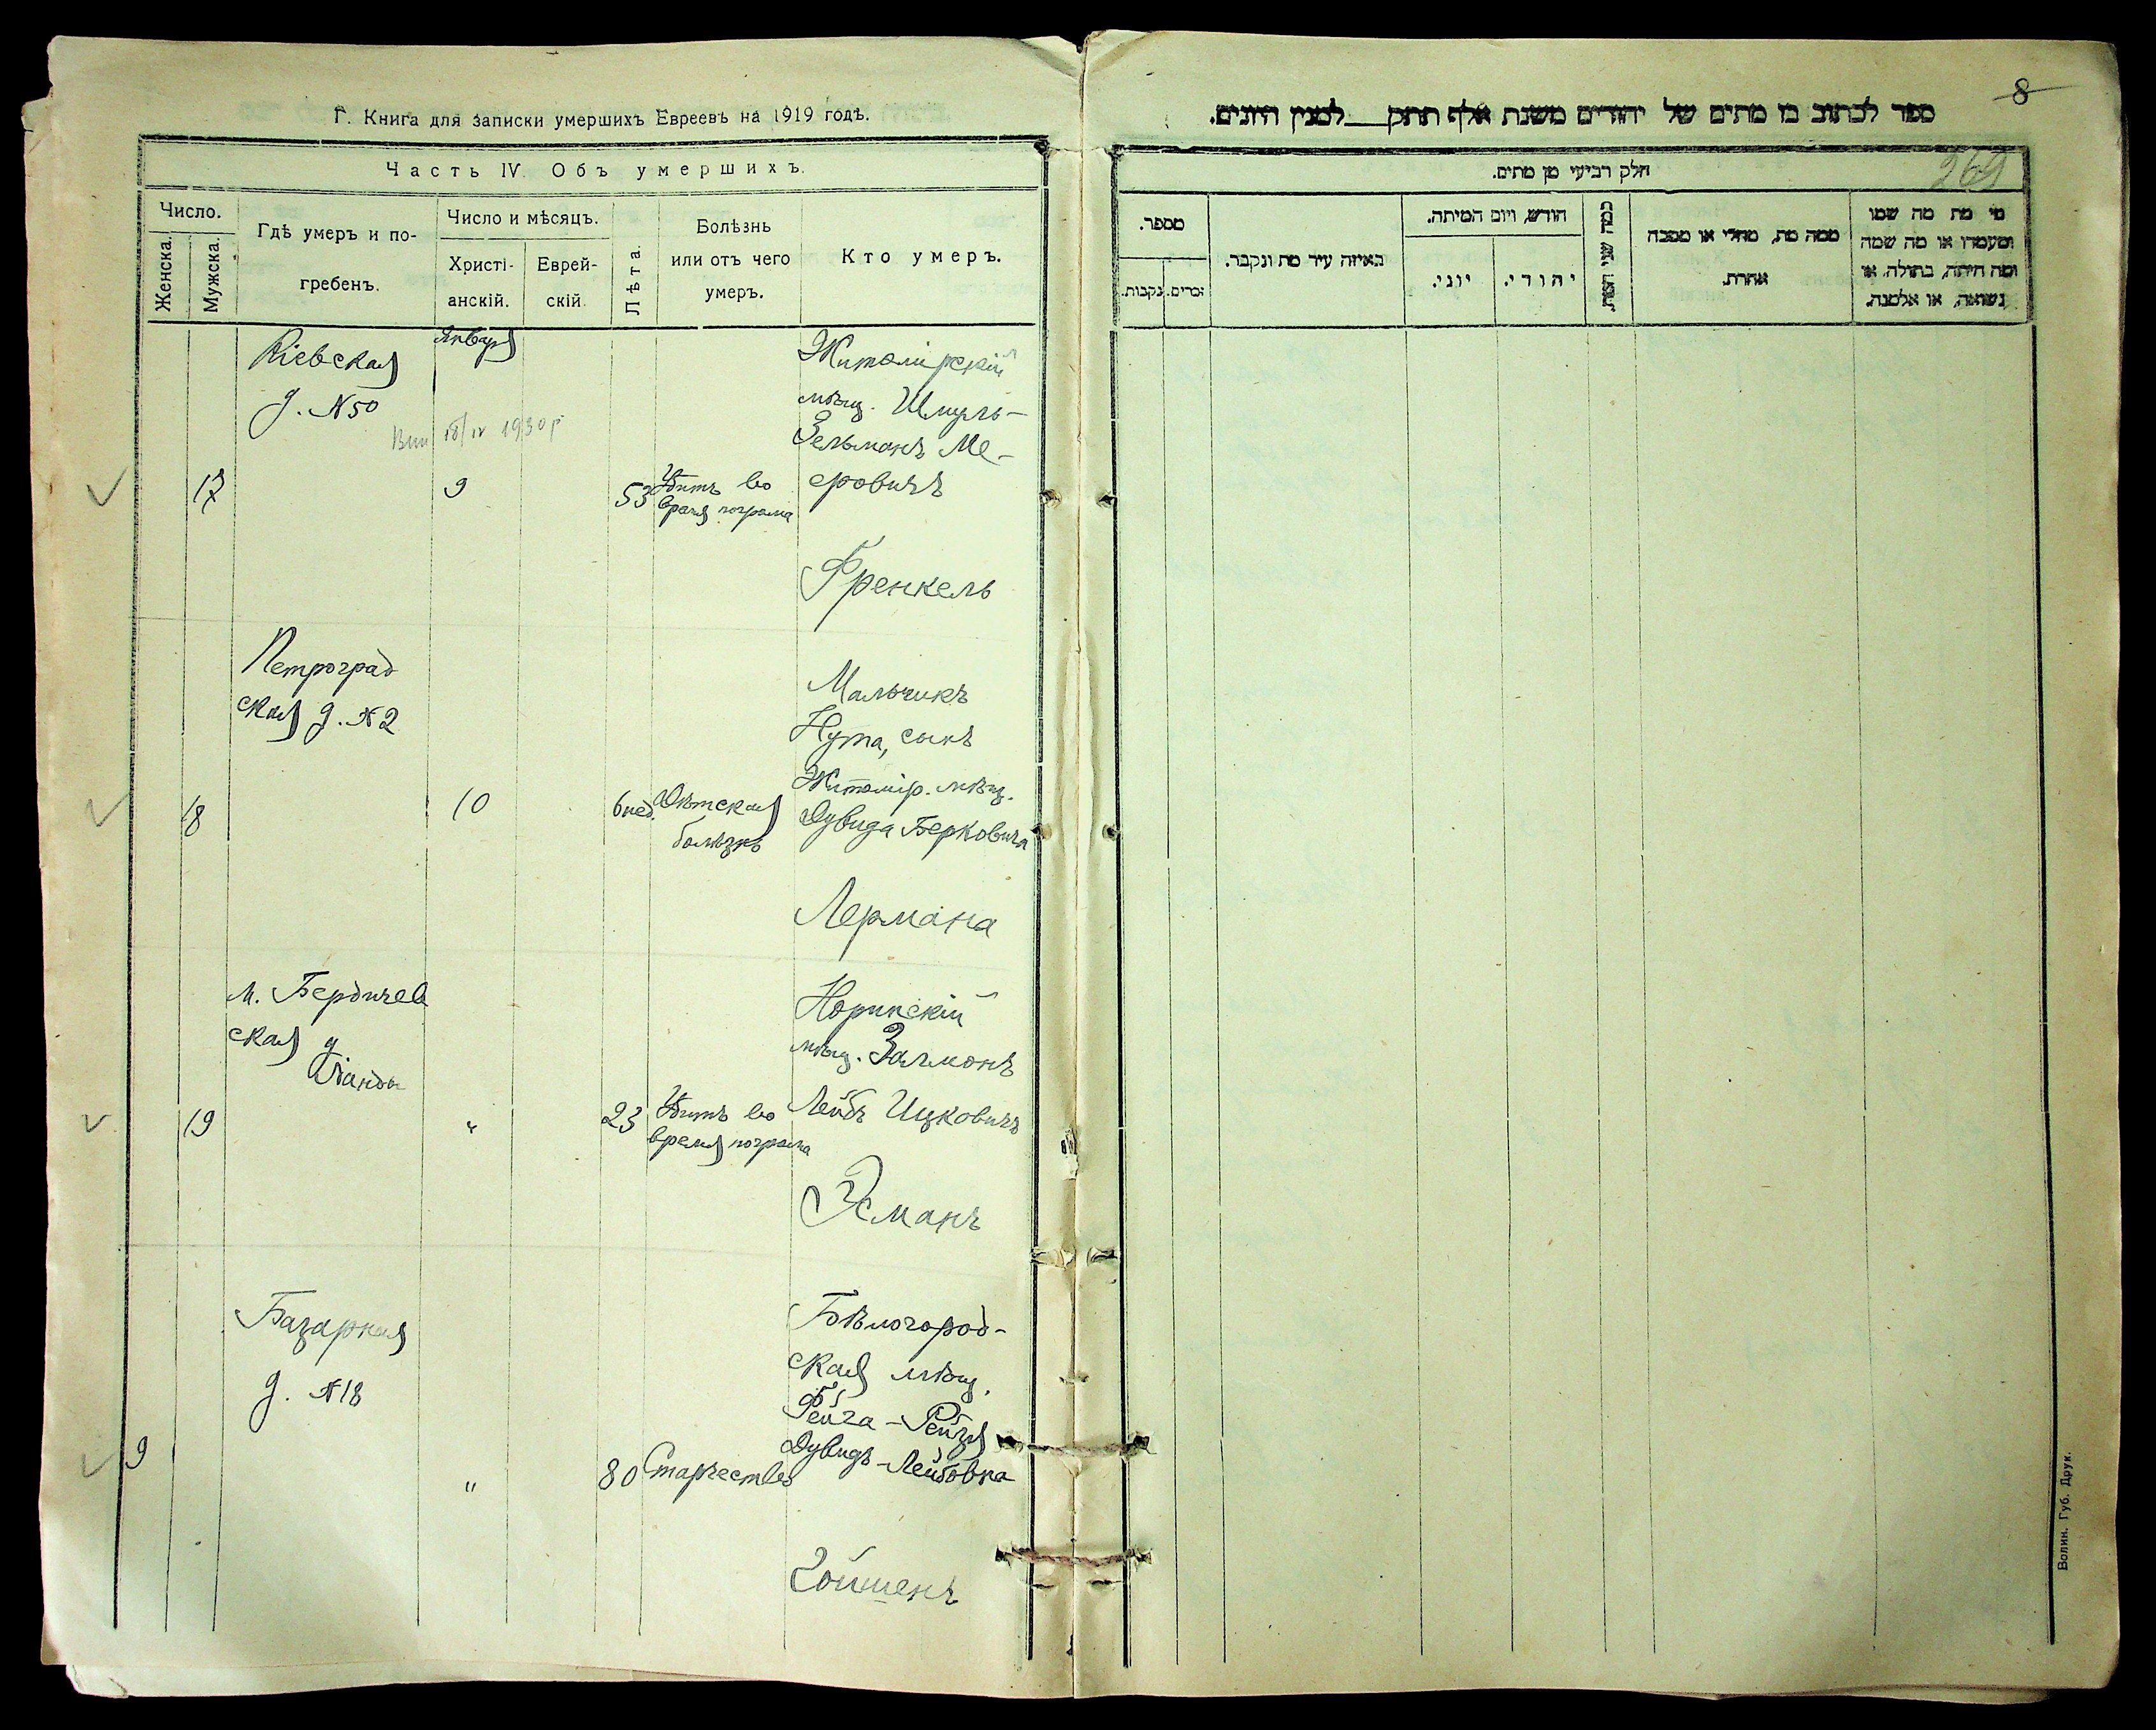 Г. Книга для записки умершихъ Евреевъ на 1919 годъ.
Часть IV. Объ умершихъ.
Число.
Женска.
Мужска.
Гдѣ умеръ и по-
гребенъ.
Число и мѣсяцъ.
Христі-
анскій.
Еврей-
скій.
Лѣта.
Болѣзнь
или отъ чего
умеръ.
Кто умеръ.
Кіевская
д. №50
Января
18/IV 1930 р
17
9
53
Убитъ во
время погрома
Житомірскій
мѣщ. Шмуль-
Зельманъ Ме-
еровичъ
Френкель
Петроград
ская д. №2
18
10
6 нед.
Дѣтская
болѣзнь
Мальчикъ
Нута, сынъ
Житомір. мѣщ.
Дувида Берковича
Лермана
М. Бердичев
ская д
19
"
23
Убитъ во
время погрома
Норинскій
мѣщ. Залмонъ
Лейбъ Ицковичъ
Эсманъ
Базарная
д. №18
9
"
80
Старчество
Бѣлогород-
ская мѣщ.
Фейга-Рейзя
Дувидъ-Лейбовна
Гойшенъ
8
ספר לכתוב בו מתים של יהודים משנת אלף תתק__ למנין היונים.
269
חלק רביעי מן מתים.
מספר.
נקבות.
זכרים.
באיזה עיר מת ונקבר.
חודש, ויום המיתה.
יוני.
יהודי.
כמה שני
ממה מת, מחלי או מסבה
אחרת.
מי מת מה שמו
ומעמדו או מה שמה
ומה היתה, בתולה, או
נשואה, או אלמנה.
Волин. Губ. Друк.